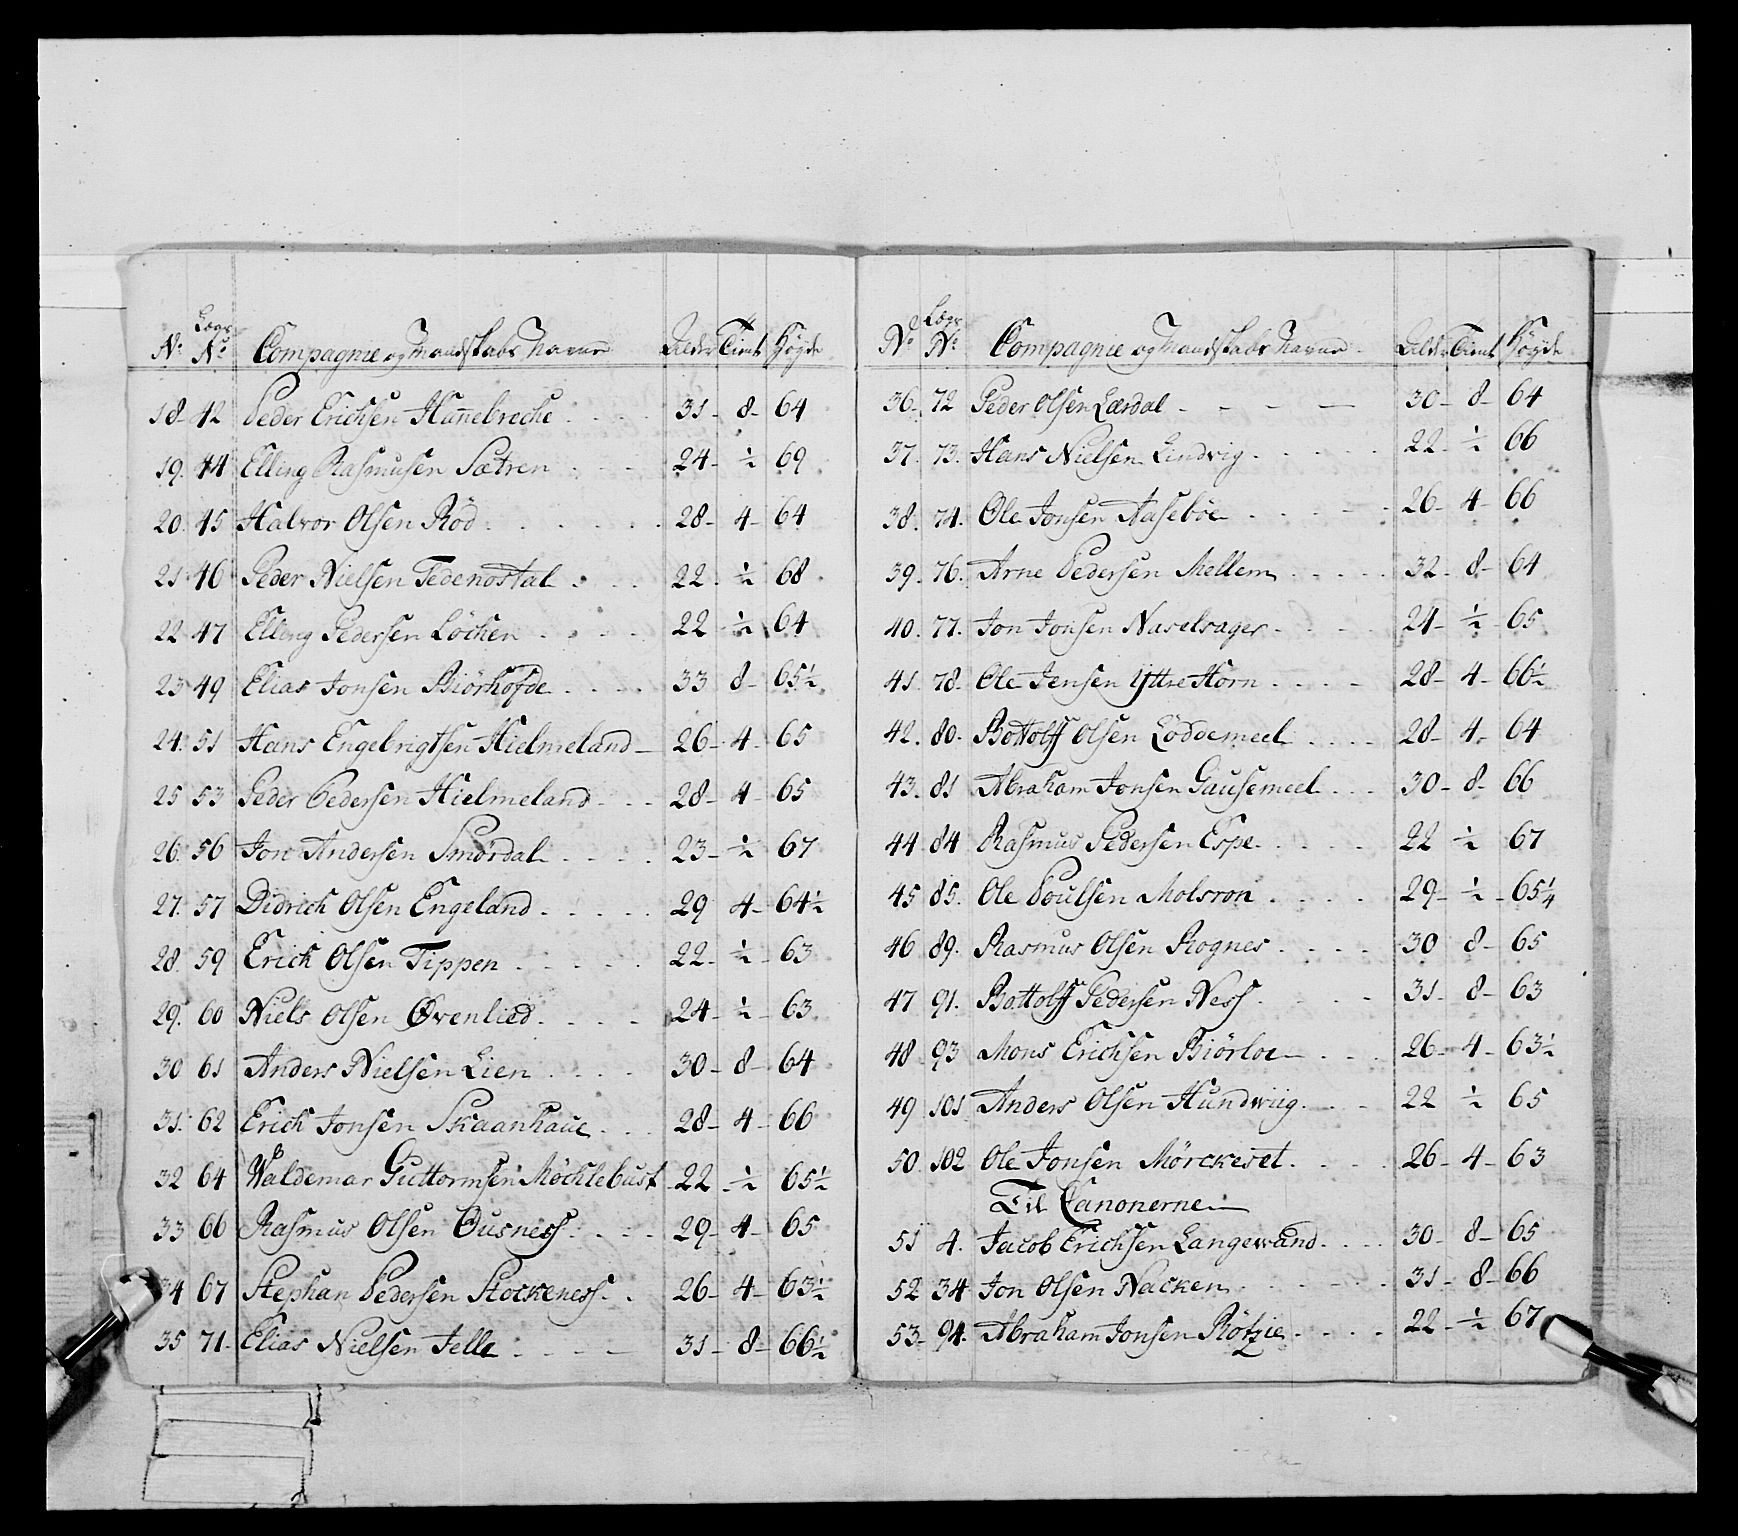 No Lægs No Compagnie og Mandskabs Navne Alder Tient Høyde
18 42 Peder Erichsen Hannebreche 31 8 64
19 44 Elling Rasmusen Sætren 24 ½ 69
20 45 Halvor Olsen Röd 28 4 64
21 46 Peder Nielsen Tedenostal 22 ½ 68
22 47 Elling Pedersen Löchen 22 ½ 64
23 49 Elias Jonsen Biörhofde 33 8 65½
24 51 Hans Engebrigtsen Hielmeland 26 4 65
25 53 Peder Pedersen Hielmeland 28 4 65
26 56 Jon Andersen Smördal 23 ½ 67
27 57 Didrich Olsen Engeland 29 4 64½
28 59 Erick Olsen Tippen 22 ½ 63
29 60 Niels Olsen Øvenlied 24 ½ 63
30 61 Anders Nielsen Lien 30 8 64
31 62 Erich Jonsen Skaanhaue 28 4 66
32 64 Waldemar Guttormsen Möchlebust 22 ½ 65½
33 66 Rasmus Olsen Ousness 29 4 65
34 67 Stephan Pedersen Stockeness 26 4 63½
35 71 Elias Nielsen Felle 31 8 66½
No Lægs No Compagnie og Mandskabs Navne Alder Tient Høyde
36 72 Peder Olsen Lærdal 30 8 64
37 73 Hans Nielsen Lindvig 22 ½ 66
38 74 Ole Jonsen Aaseböe 26 4 66
39 76 Arne Pedersen Mellem 32 8 64
40 77 Jon Jonsen Naselsager 24 ½ 65
41 78 Ole Jensen Yttre Horn 28 4 66½
42 80 Bottolff Olsen Löddemeel 28 4 64
43 81 Abraham Jonsen Gausemeel 30 8 66
44 84 Rasmus Pedersen Espe 22 ½ 67
45 85 Ole Poulsen Molsron 29 ½ 65¼
46 89 Rasmus Olsen Rognes 30 8 65
47 91 Bottolff Pedersen Ness 31 8 63
48 93 Mons Erichsen Biörloe 26 4 63½
49 101 Anders Olsen Hundwiig 22 ½ 65
50 102 Ole Jonsen Mörckeset 26 4 63
Til Canonerne
51 4 Jacob Erichsen Langewand 30 8 65
52 34 Jon Olsen Nacken 31 8 66
53 94 Abraham Jonsen Rötzie 22 ½ 67